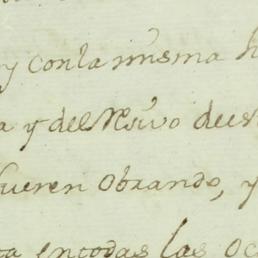 y con la misma
a y del Resivo de
fueren obrando, y
en todas las oc